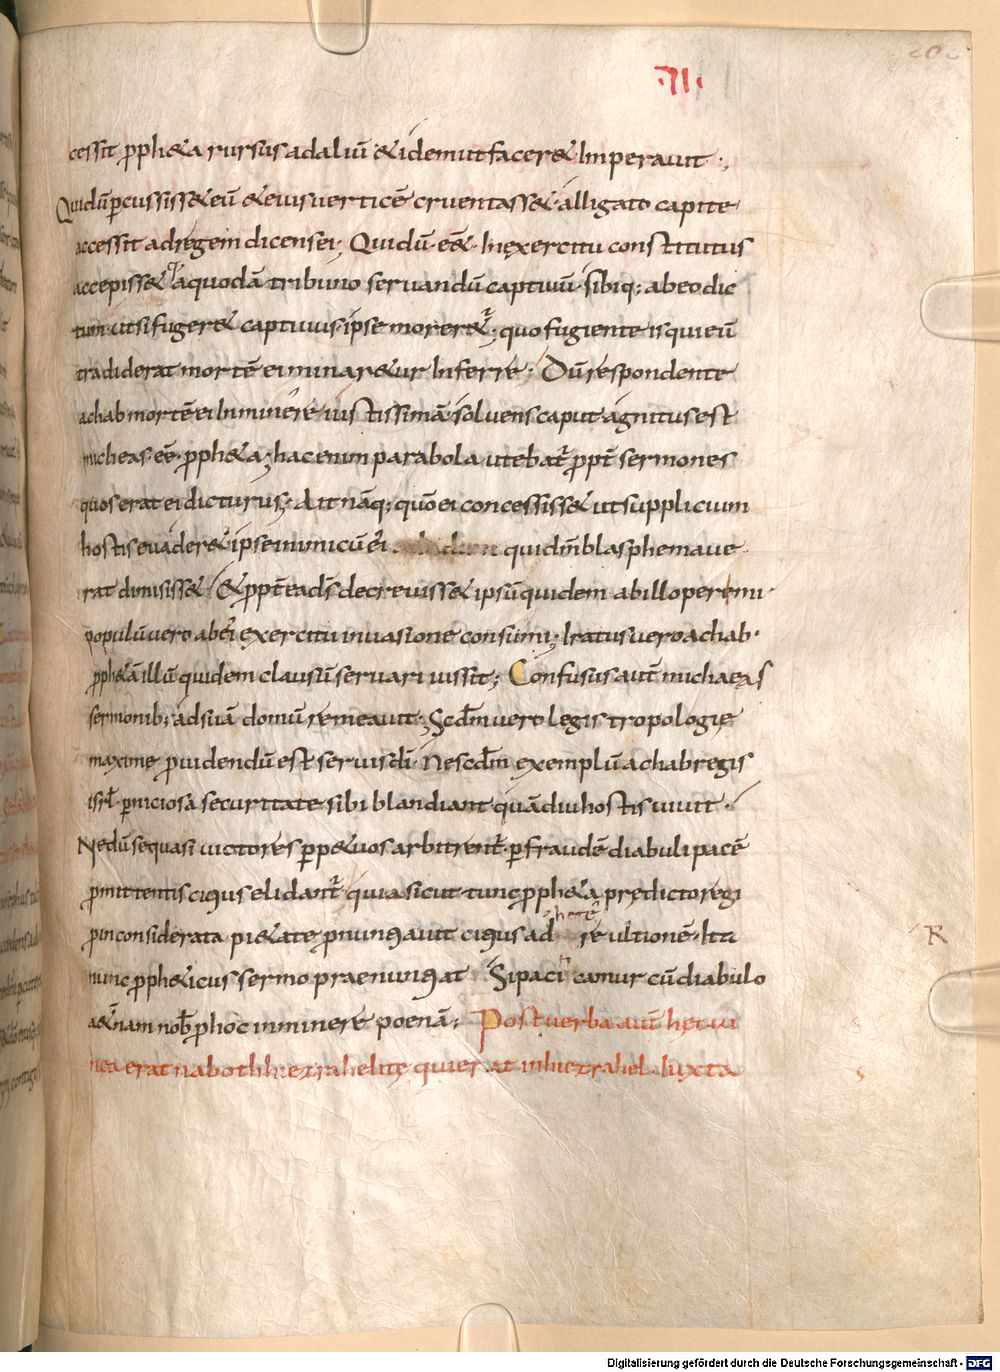 ·VI·
cessit pph&a rursus ad aliū & idem ut facer& Imperavit ·,
Qui dū percussiss& eū & eius verticē cruentass& · alligato capite
accessit ad regem dicens ei; Qui dū eē& · In exercitu constitutus
accepisse& a quodā tribuno servandū captivū · sibiq; ab eo dic
tum · ut si fuger& captivus · ipse morer&r̄ · quo fugiente is qui eū
tradiderat mortē ei minar&ur Inferre · Dū respondente
achab mortē ei Inminere iustissimā · solvens caput · agnitus est
micheas eē pph&a; hac enim parabola utebat̄ ppt̄ sermones
quos erat ei dicturus; Ait nāq; quō ei concessiss& ut supplicium
hostis evader& ipse inimicū ei qui dm̄ blasphemave
rat dimisiss& · & ppt̄ ea ds̄ decreviss& ipsū quidem · ab illo peremi ·
populū vero ab ei exercitu invasione consumi; Iratus vero achab ·
pph&ā illū quidem clausū servari iussit; Confusus aut̄ michaeas
sermonib; ad suā domū remeavit; Scdm̄ vero legis tropologię
maximę pvidendū est servis dī · Ne scdm̄ exemplū achab regis
isrl̄ · pniciosa securitate sibi blandiant · quādiu hostis vivit ·
Ne dū se quasi victores perp&uos arbitrent̄ · p fraudē diabuli pacē
pmittentis cicius elidant̄ · quia sicut tunc pph&a prędicto regi
p inconsiderata pi&ate pnunciavit cicius ad re ultionē · Ita
nunc pph&icus sermo praenunciat Si paci camur cū diabulo
a&nam nob p hoc inminere poenā; Post verba aut̄ hęc vi
nea erat naboth hiezrahelitę qui erat in hiezrahel · Iuxta
R